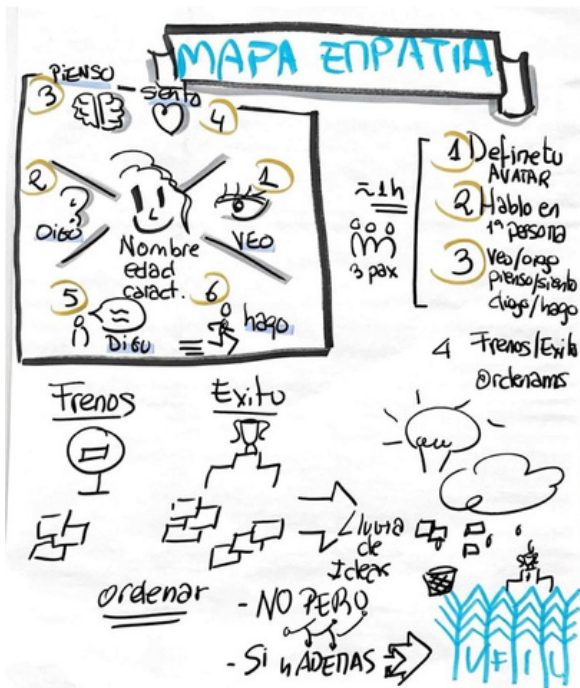 MAPA EMPATIA
PIENSO - siento
3
4
2
1
OIGO
VEO
Nombre
edad
caract.
5
6
DIGO
hago
≈1h
3 pax
1 Define tu
AVATAR
2 Hablo en
1ª persona
3 Veo/oigo
pienso/siento
digo/hago
4 Frenos/Exito
Ordenamos
Frenos
Exito
Lluvia
de
Ideas
Ordenar
- NO PERO
- Si y ADEMAS